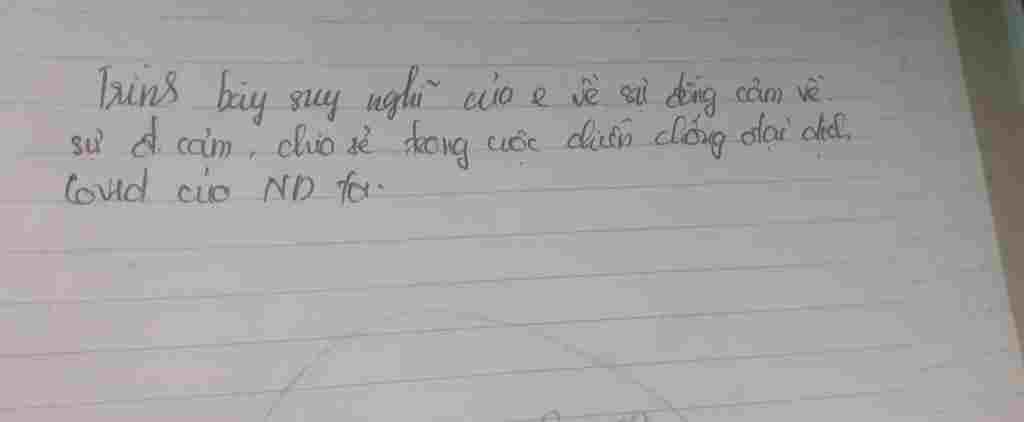 Trình bày suy nghĩ của e về sự đồng cảm về
sự đ cảm, chia sẻ trong cuộc chiến chống đại dịch
Covid của ND ta.